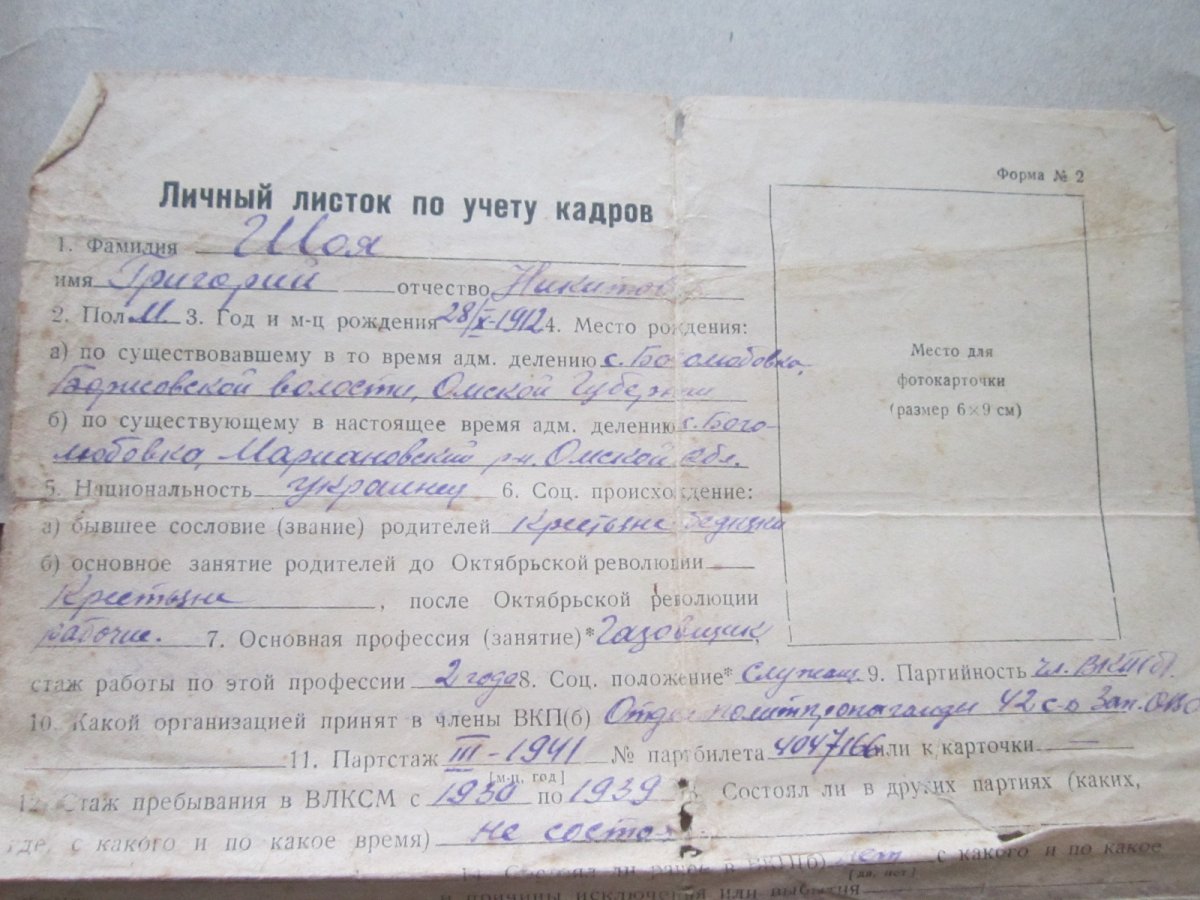 Форма № 2
Личный листок по учету кадров
1. Фамилия Шоя
имя Григорий отчество Никитов
2. Пол М. 3. Год и м-ц рождения 28/X-1912 4. Место рождения:
а) по существовавшему в то время адм. делению с. Боголюбовка,
Борисовской волости, Омской Губернии
б) по существующему в настоящее время адм. делению с. Бого-
любовка, Марьяновский р-н. Омской обл.
5. Национальность украинец 6. Соц. происхождение:
а) бывшее сословие (звание) родителей Крестьяне бедняки
б) основное занятие родителей до Октябрьской революции
Крестьяне, после Октябрьской революции
рабочие. 7. Основная профессия (занятие)* Газовщик,
стаж работы по этой профессии 2 года 8. Соц. положение* Служащ. 9. Партийность чл. ВКП(б).
10. Какой организацией принят в члены ВКП(б) Отдел политпропаганды 42 с-д Зап. ОВО
11. Партстаж III-1941 № партбилета 4047166 или к/карточки —
[м-ц, год]
12. Стаж пребывания в ВЛКСМ с 1930 по 1939 Состоял ли в других партиях (каких,
где, с какого и по какое время) не состоял
Место для
фотокарточки
(размер 6×9 см)
14. Состоял ли ранее в ВКП(б) нет с какого и по какое
[да, нет]
и причины исключения или выбытия